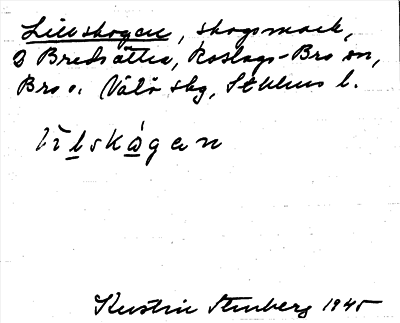 Lillskogen, skogsmark,
Bredsättra, Roslags-Bro sn,
Bro o. Vätö skg, Sthlms l.
Kerstin Stenberg 1945